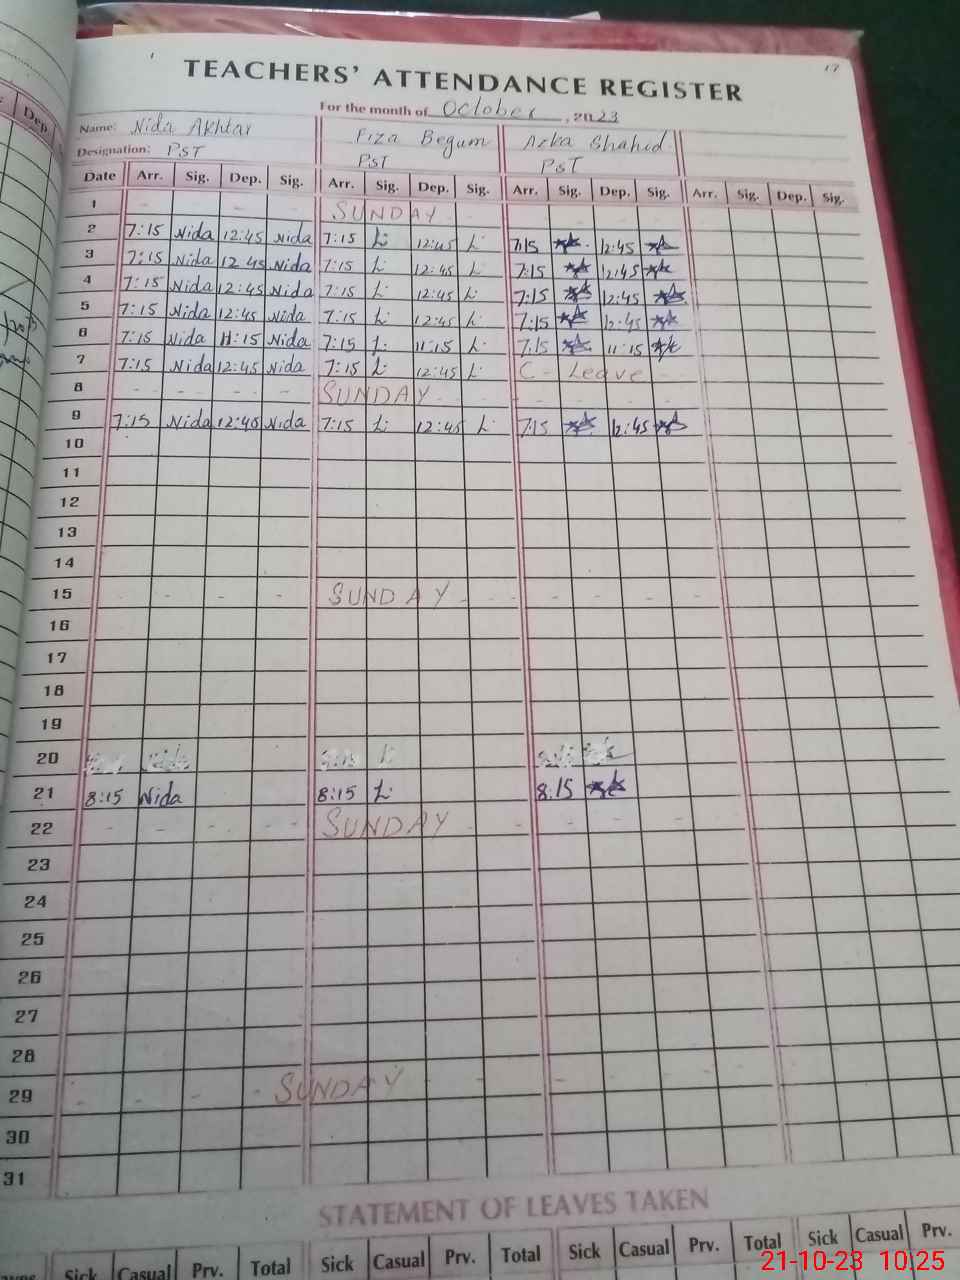 17
TEACHERS' ATTENDANCE REGISTER
For the month of October, 2023
Name: Nida Akhtar Fiza Begum Azka Shahid
Designation: PST PST PST
Date Arr. Sig. Dep. Sig. Arr. Sig. Dep. Sig. Arr. Sig. Dep. Sig. Arr. Sig. Dep. Sig.
1 - - - - SUNDAY - - - - -
2 7:15 Nida 12:45 Nida 7:15 12:45 7:15 12:45
3 7:15 Nida 12 45 Nida 7:15 12:45 7:15 12:45
4 7:15 Nida 12:45 Nida 7:15 12:45 7:15 12:45
5 7:15 Nida 12:45 Nida 7:15 12:45 7:15 12:45
6 7:15 Nida 11:15 Nida 7:15 11:15 7:15 11:15
7 7:15 Nida 12:45 Nida 7:15 12:45 C - Leave
8 - - - - SUNDAY - - - - -
9 7:15 Nida 12:45 Nida 7:15 12:45 7:15 12:45
10
11
12
13
14
15 - - - - SUNDAY - - - - - -
16
17
18
19
20
21 8:15 Nida 8:15 8:15
22 - - - - SUNDAY - - - - - -
23
24
25
26
27
28
29 - - - - SUNDAY - - - - - -
30
31
STATEMENT OF LEAVES TAKEN
Sick Casual Prv. Total Sick Casual Prv. Total Sick Casual Prv. Total Sick Casual Prv.
21-10-23 10:25